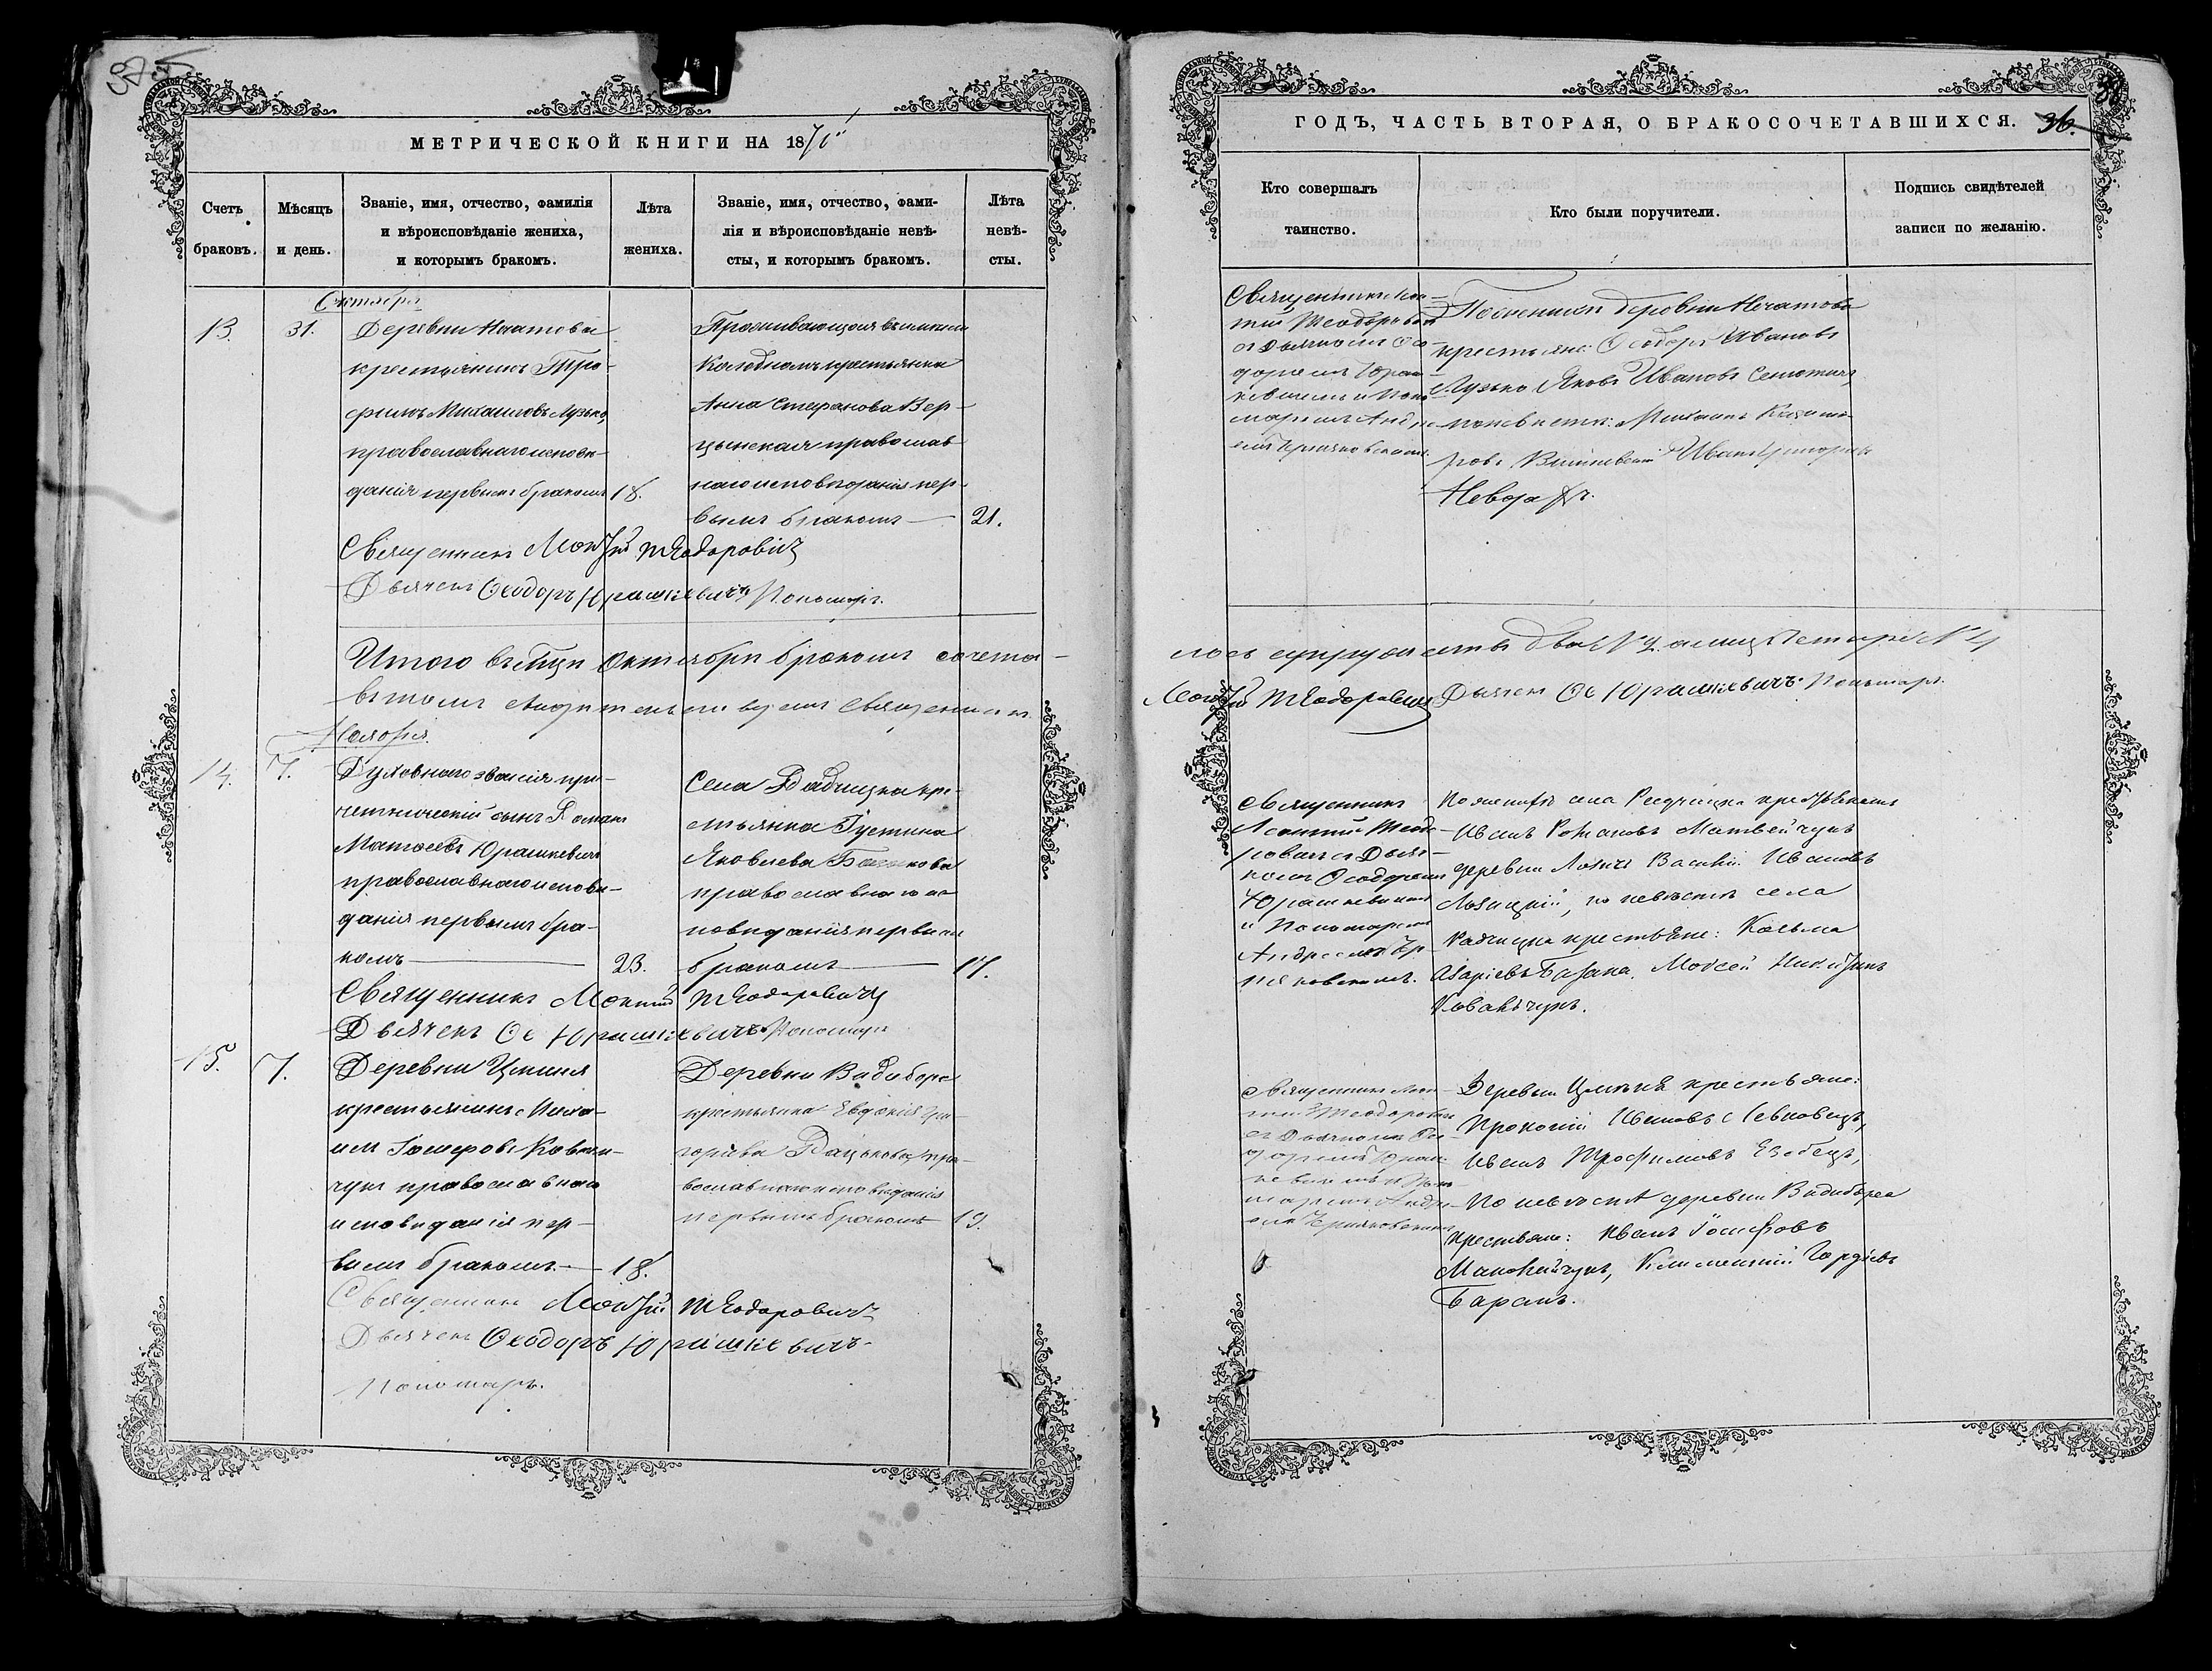 МЕТРИЧЕСКОЙ КНИГИ НА 1871й
Счетъ браковъ.
Мѣсяцъ и день.
Званіе, имя, отчество, фамилія
и вѣроисповѣданіе жениха,
и которымъ бракомъ.
Лѣта жениха.
Званіе, имя, отчество, фами-
лія и вѣроисповѣданіе невѣ-
сты, и которымъ бракомъ.
Лѣта невѣ-
сты.
Октября
13.
31.
Деревни
крестьянинъ Тро-
фимъ Михаиловъ Лузько,
православнаго исповѣ-
данія первымъ бракомъ
18.
Проживающая въ имѣніи
Колодномъ крестьянка
Анна Стефанова Вер-
цынская православ
наго исповѣданія пер-
вымъ бракомъ
21.
Священникъ Мокій Теодоровичъ
Дьячекъ Ѳеодоръ Юрашкевичъ Пономарь.
Итого въ м-цѣ Октябрѣ бракомъ сочета-
въ томъ свидѣтельствуемъ Священникъ
Ноября
14.
7.
Духовнаго званія при-
четническій сынъ Романъ
Матѳеевъ Юрашкевичъ
православнаго исповѣ-
данія первымъ бра-
комъ
23.
Села Радчицка кре-
стьянка Густина
Яковлева
православнаго ис
повѣданія первымъ
бракомъ
17.
Священникъ Мокій Теодоровичъ
Дьячекъ Ѳе Юрашкевичъ Пономарь
15.
7.
Деревни Цминя
крестьянинъ Миха-
илъ Іосифовъ Ковань-
чукъ православнаго
исповѣданія пер-
вымъ бракомъ.
18.
Деревни Видибора
крестьянка Евдокія Гри-
горьева Рацькова, пра-
вославнаго исповѣданія
первымъ бракомъ
19.
Священникъ Мокій Теодоровичъ
Дьячекъ Ѳеодоръ Юрашкевичъ.
Пономарь.
ГОДЪ, ЧАСТЬ ВТОРАЯ, О БРАКОСОЧЕТАВШИХСЯ.
36.
Кто совершалъ
таинство.
Кто были поручители.
Подпись свидѣтелей
записи по желанію.
Священникъ Мо-
кій Теодоровичъ
съ Дьячкомъ Ѳео-
доромъ Юраш-
кевичемъ и Поно
маремъ Андре
емъ
По женихѣ деревни
крестьяне: Ѳеодоръ Ивановъ
Лузько Яковъ Ивановъ Сенютичъ,
по невѣстѣ: Михаилъ Казими-
ровъ Иванъ Григорьевъ
лось супружествъ два №2. а лицъ четыре №4
Мокій Теодоровичъ Дьячекъ Ѳе Юрашкевичъ. Пономарь.
Священникъ
Мокій Теодо-
ровичъ съ Дьяч-
комъ Ѳеодоромъ
Юрашкевичемъ
и Пономаремъ
Андреемъ Чер-
няковскимъ.
По женихѣ села Радчицка
Иванъ Романовъ Матвейчукъ
деревни Лозичъ Василій Ивановъ
Лозицкій, по невѣстѣ села
Радчицка крестьяне: Козьма
Азаріевъ Базана. Мойсей
Кованьчукъ.
Священникъ Мо-
кій Теодоровичъ
съ Дьячкомъ Ѳео-
доромъ Юраш-
кевичемъ и Поно-
маремъ Андре-
емъ Черняковскимъ
Деревни Цминя крестьяне:
Прокопій Ивановъ Левковецъ,
Иванъ Трофимовъ
По невѣстѣ деревни Видибора
крестьяне: Иванъ Іосифовъ
Климентій Гордіевъ
Баранъ.